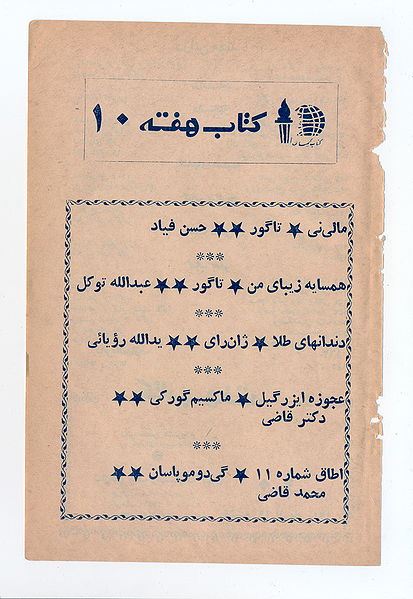 کتاب هفته ۱۰
مالی‌نی ★ تاگور ★★ حسن فیاد
***
همسایه زیبای من ★ تاگور ★★ عبدالله توکل
***
دندانهای طلا ★ ژان‌رای ★★ یدالله رؤیائی
***
عجوزه ایزرگیل ★ ماکسیم گورکی ★★
دکتر قاضی
***
اطاق شماره ۱۱ ★ گی‌دوموپاسان ★★
محمد قاضی